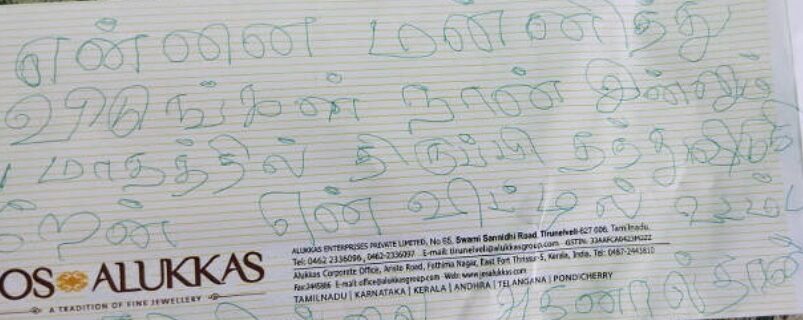 என்னை மன்னித்து
விடுங்கள் நான் இன்னும்
மாதத்தில் திருப்பி தந்து விடுகி
றேன் என் வீட்டில் உடம்
ALUKKAS ENTERPRISES PRIVATE LIMITED, No 65, Swami Sannidhi Road, Tirunelveli-627 006, Tamilnadu.
Tel: 0462 2336096, 0462-2336097 E-mail: tirunelveli@alukkasgroup.com
Alukkas Corporate Office, Aristo Road, Fathima Nagar, East Fort Thrissur-5, Kerala, India. Tel: 0487-2445810
E-mail: office@alukkasgroup.com Web: www.josalukkas.com
OS ALUKKAS
A TRADITION OF FINE JEWELLERY
TAMILNADU | KARNATAKA | KERALA | ANDHRA | TELANGANA | PONDICHERRY
அதனால்தான்